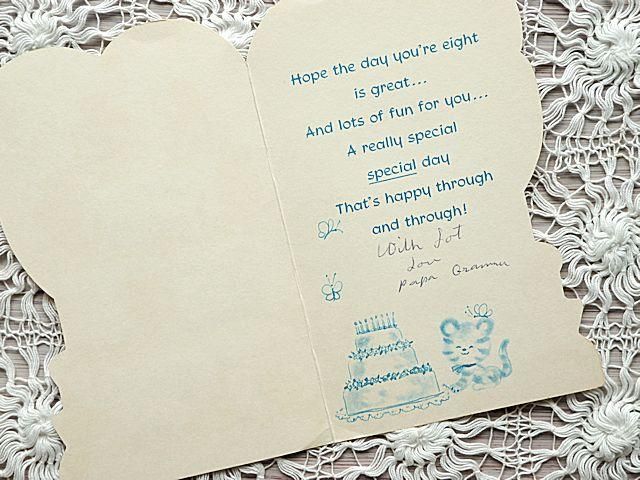 Hope the day you're eight
is great...
And lots of fun for you...
A really special
special day
That's happy through
and through!
With Lot
Lov
Papa Gramma